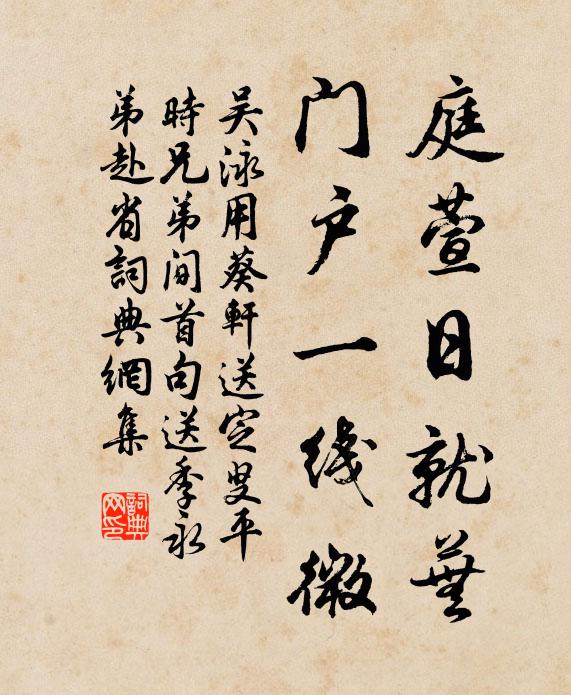 庭萱日就蕪
门户一线微
吴泳用葵軒送定叟平
時兄弟间首句送季永
弟赴省詞典網集
詞典网印